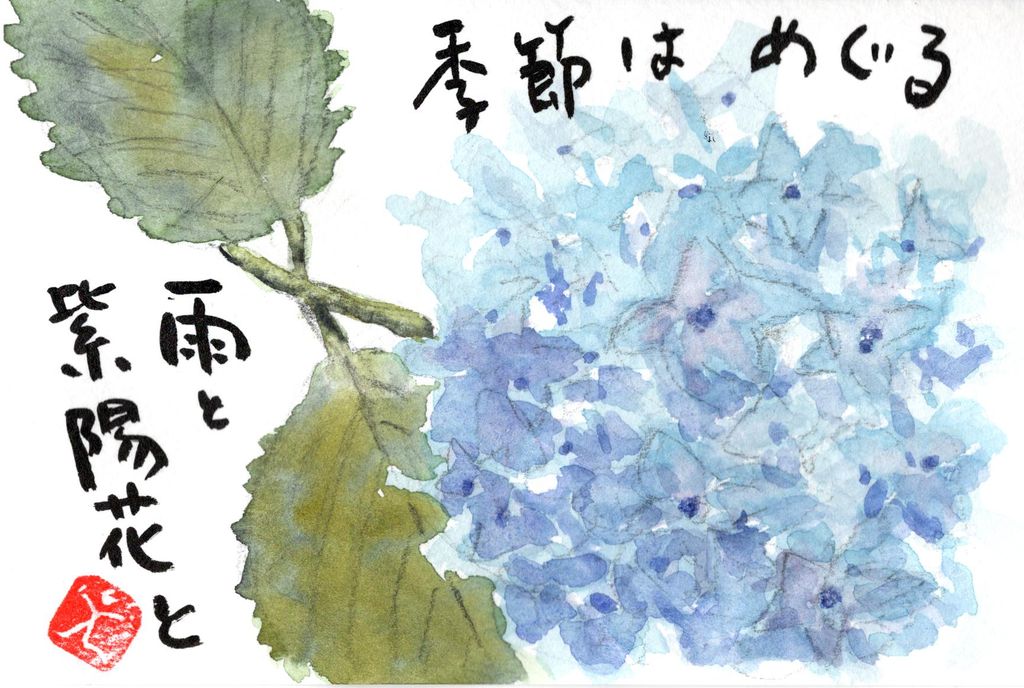 季節はめぐる
雨と
紫陽花と